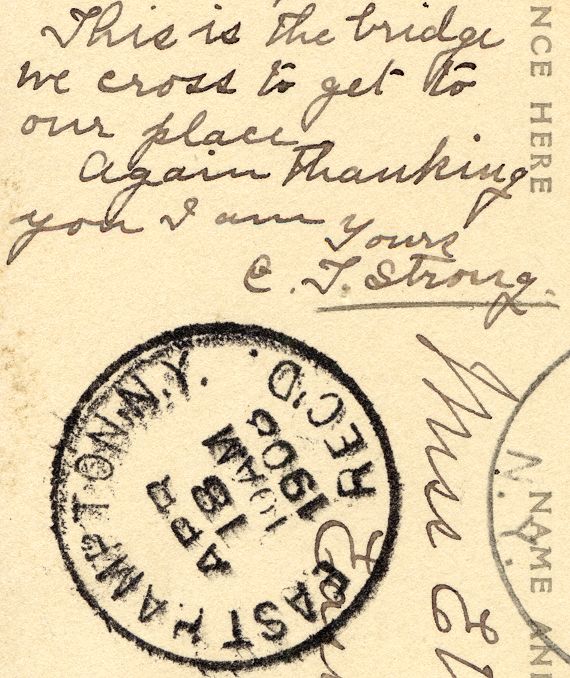 This is the bridge
we cross to get to
our place
Again thanking
you I am
Yours
C. T. Strong.
EASTHAMPTON. N.Y.
REC'D
APR
18
10 AM
1906
NCE HERE
NAME AN
N.Y.
Miss El
Eas